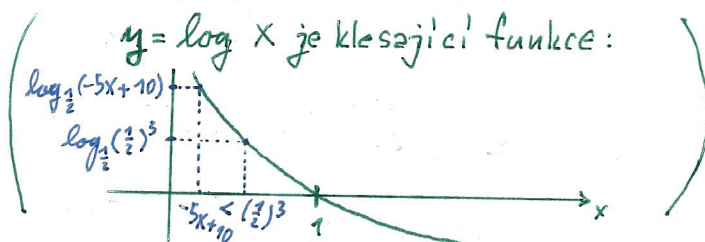 y = log x je klesající funkce:
log_{1/2}(-5x+10)
log_{1/2}(1/2)^3
-5x+10 < (1/2)^3
1
x